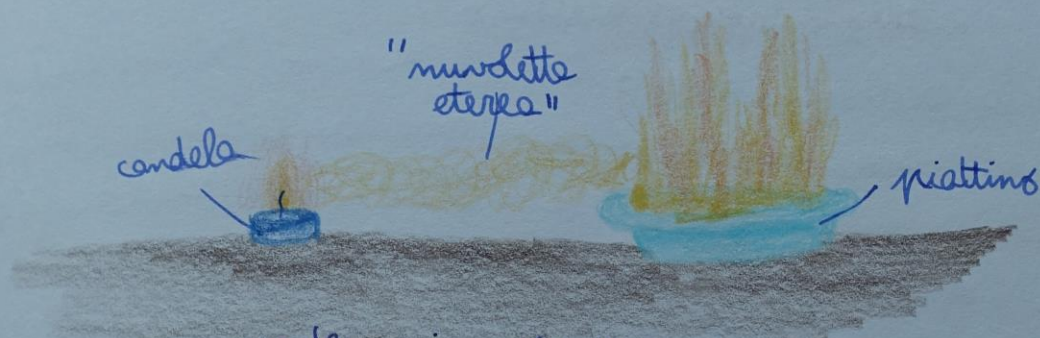 "nuvoletta
eterea"
candela
piattino